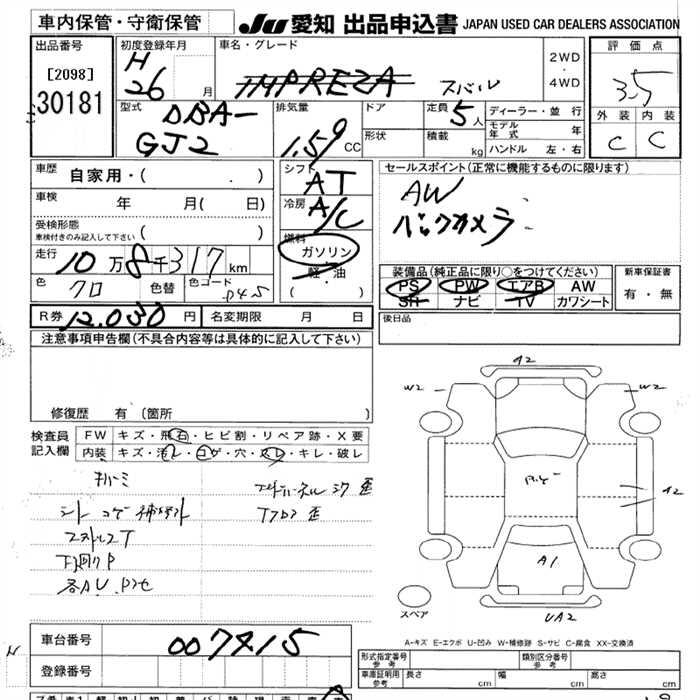 車内保管・守衛保管 JU 愛知 出品申込書 JAPAN USED CAR DEALERS ASSOCIATION
出品番号 初度登録年月 車名・グレード 2WD・4WD 評価点
[2098] H 26 月 IMPREZA スバル 3.5
30181 型式 DBA-GJ2 排気量 1.59 CC ドア 形状 定員 5人 積載 kg ディーラー・並行 モデル年式 年 ハンドル 左・右 外装 内装
C C
車歴 自家用・( . ) シフト AT セールスポイント(正常に機能するものに限ります)
車検 年 月( 日) 冷房 A/C AW
受検形態 車検付きのみ記入して下さい ( ) バックカメラ
走行 10万8千317km 燃料 ガソリン・軽油 ( ) 装備品(純正品に限り○をつけてください) 新車保証書
色 クロ 色替 色コード P4S PS PW エアB AW 有・無
SH ナビ TV カワシート
R券 12.030円 名変期限 月 日 後日品
注意事項申告欄(不具合内容等は具体的に記入して下さい)
修復歴 有 (箇所 )
検査員記入欄 FW キズ・飛石・ヒビ割・リペア跡・X要
内装 キズ・汚レ・コゲ・穴・スレ・キレ・破レ
シートコゲ
A2
W2 W2
A2
A1
スペア UA2
A-キズ E-エクボ U-凹み W-補修跡 S-サビ C-腐食 XX-交換済
車台番号 007415
登録番号
形式指定番号 参考 類別区分番号 参考
車庫証明用 参考 長さ cm 幅 cm 高さ cm